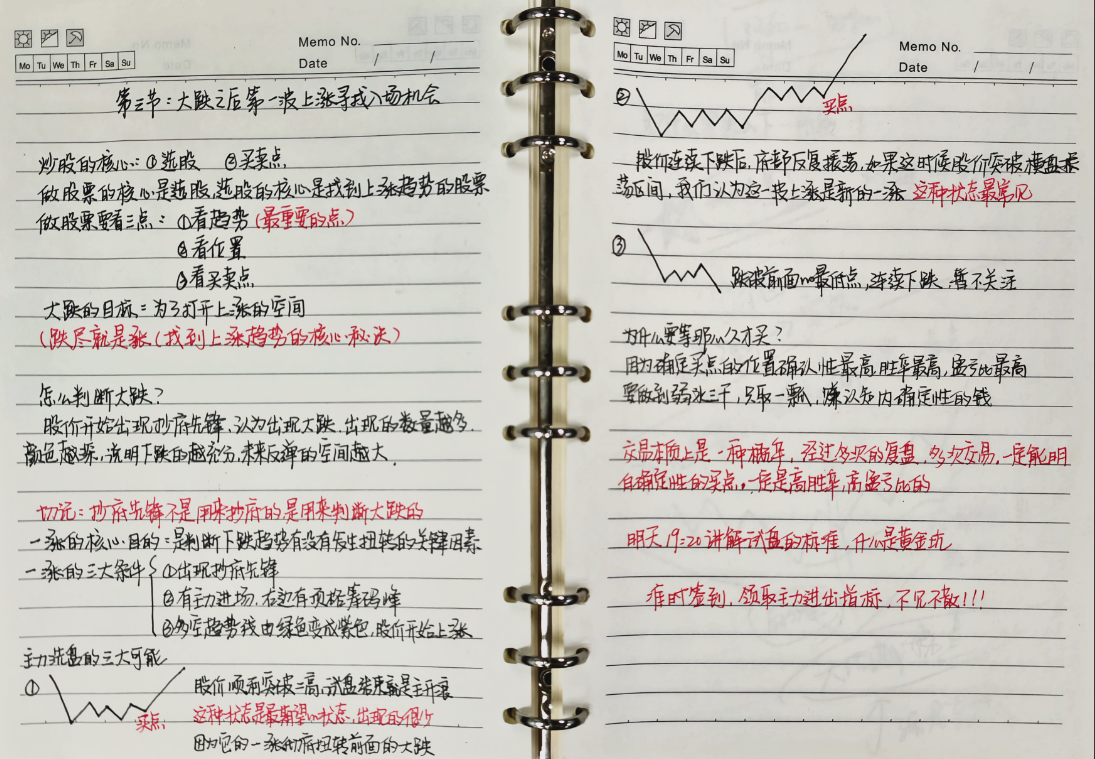 Memo No.
Mo Tu We Th Fr Sa Su
Date / /
第三节：大跌之后第一波上涨寻找入场机会
炒股的核心：①选股 ②买卖点
做股票的核心是选股，选股的核心是找到上涨趋势的股票
做股票要看三点：①看趋势（最重要的点）
②看位置
③看买卖点
大跌的目标=为了打开上涨的空间
（跌尽就是涨（找到上涨趋势的核心秘诀）
怎么判断大跌？
股价开始出现抄底先锋，认为出现大跌，出现的数量越多，
颜色越深，说明下跌的越充分，未来反弹的空间越大。
切记：抄底先锋不是用来抄底的是用来判断大跌的
一涨的核心目的：是判断下跌趋势有没有发生扭转的关键因素
一涨的三大条件 ①出现抄底先锋
②有主力进场，右边有资格筹码峰
③多空趋势线由绿色变成紫色，股价开始上涨
主力洗盘的三大可能
① 股价顺利突破二高，试盘结束就是主升浪
买点 这种状态是最期望的状态，出现的很少
因为它的一涨彻底扭转前面的大跌
Memo No.
Mo Tu We Th Fr Sa Su
Date / /
② 买点
股价连续下跌后，底部反复振荡，如果这时候股价突破横盘振
荡区间，我们认为这一波上涨是新的一涨 这种状态最常见
③ 跌破前面的最低点，连续下跌，暂不关注
为什么要等那么久才买？
因为确定买点的位置确认性最高，胜率最高，盈亏比最高
要做到弱水三千，只取一瓢，赚认知内确定性的钱
交易本质上是一种概率，经过多次的复盘，多次交易，一定能明
白确定性的买点，一定是高胜率，高盈亏比的
明天19:20讲解试盘的标准，什么是黄金坑
准时签到，领取主力进出指标，不见不散!!!